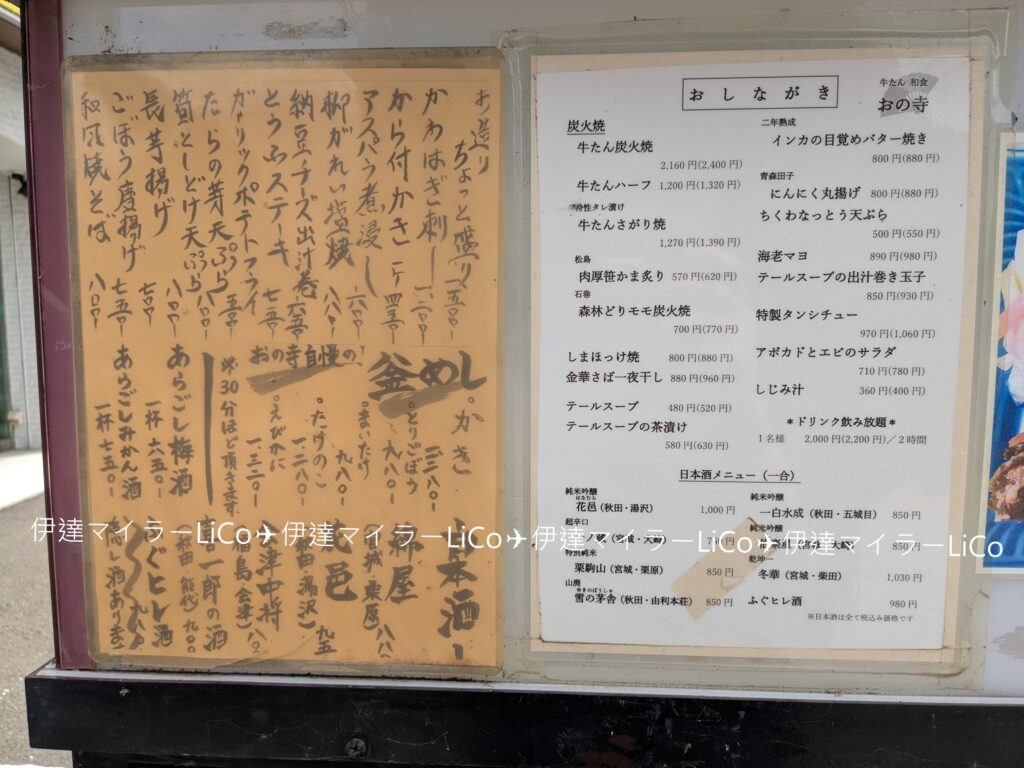 お造り
ちょっと盛り 一五〇〇ー
かわはぎ刺し 一二〇〇ー
から付かき 一ヶ 四五〇ー
アスパラ煮浸し 六〇〇ー
柳がれい塩焼 八八〇ー
納豆チーズ出汁巻 六五〇ー
とうふステーキ 七五〇ー
ガーリックポテトフライ 五五〇ー
たらの芽天ぷら
筍としどけ天ぷら 八〇〇ー
長芋揚げ 七〇〇ー
ごぼう唐揚げ 七五〇ー
和風焼そば 八〇〇ー
おの寺自慢の!
釜めし
。かき
。とりごぼう 九八〇ー
。まいたけ 九八〇ー
。たけのこ 一二八〇ー
。えびかに 一三二〇ー
※30分ほど頂きます
あらごし梅酒
一杯 六五〇ー
あらごしみかん酒
一杯 七五〇ー
日本酒
綿屋
(宮城・栗原)
花邑
(秋田・湯沢)
会津中将
(福島・会津)
一郎の酒
ふぐヒレ酒
おしながき
牛たん 和食
おの寺
炭火焼
牛たん炭火焼
2,160円(2,400円)
牛たんハーフ 1,200円(1,320円)
特性タレ漬け
牛たんさがり焼
1,270円(1,390円)
松島
肉厚笹かま炙り 570円(620円)
石巻
森林どりモモ炭火焼
700円(770円)
しまほっけ焼 800円(880円)
金華さば一夜干し 880円(960円)
テールスープ 480円(520円)
テールスープの茶漬け
580円(630円)
二年熟成
インカの目覚めバター焼き
800円(880円)
青森田子
にんにく丸揚げ 800円(880円)
ちくわなっとう天ぷら
500円(550円)
海老マヨ 890円(980円)
テールスープの出汁巻き玉子
850円(930円)
特製タンシチュー
970円(1,060円)
アボカドとエビのサラダ
710円(780円)
しじみ汁 360円(400円)
*ドリンク飲み放題*
1名様 2,000円(2,200円)/2時間
日本酒メニュー(一合)
純米吟醸
はなむら
花邑(秋田・湯沢) 1,000円
超辛口
特別純米
栗駒山(宮城・栗原) 850円
山廃
ゆきのぼうしゃ
雪の茅舎(秋田・由利本荘) 850円
純米吟醸
一白水成(秋田・五城目) 850円
純米吟醸
850円
乾坤一
冬華(宮城・柴田) 1,030円
ふぐヒレ酒 980円
※日本酒は全て税込み価格です
伊達マイラーLiCo✈伊達マイラーLiCo✈伊達マイラーLiCo✈伊達マイラーLiCo